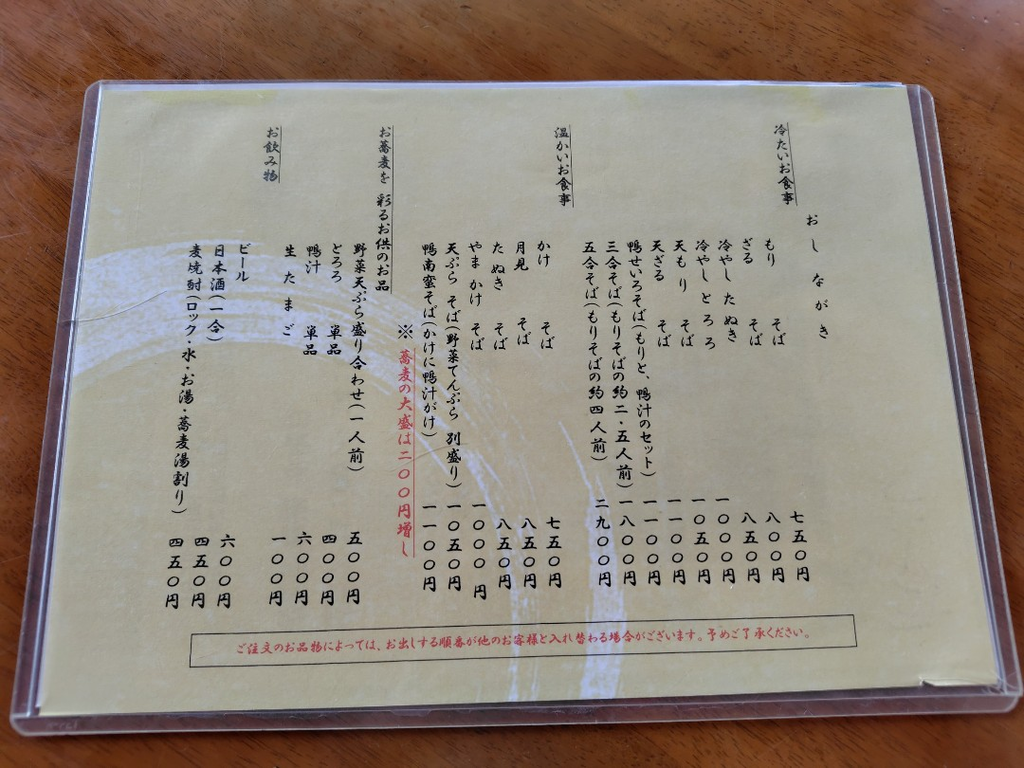 おしながき
冷たいお食事
もり そば 七五〇円
ざる そば 八〇〇円
冷やし たぬき 八五〇円
冷やし とろろ 一〇〇〇円
天もり そば 一〇五〇円
天ざる そば 一一〇〇円
鴨せいろそば(もりと、鴨汁のセット) 一一〇〇円
三合そば(もりそばの約二・五人前) 一八〇〇円
五合そば(もりそばの約四人前) 二九〇〇円
温かいお食事
かけ そば 七五〇円
月見 そば 八五〇円
たぬき そば 八五〇円
やまかけ そば 一〇〇〇円
天ぷら そば(野菜てんぷら 別盛り) 一〇五〇円
鴨南蛮そば(かけに鴨汁がけ) 一一〇〇円
※ 蕎麦の大盛は二〇〇円増し
お蕎麦を 彩るお供のお品
野菜天ぷら盛り合わせ(一人前) 五〇〇円
とろろ 単品 四〇〇円
鴨汁 単品 六〇〇円
生たまご 一〇〇円
お飲み物
ビール 六〇〇円
日本酒(一合) 四五〇円
麦焼酎(ロック・水・お湯・蕎麦湯割り) 四五〇円
ご注文のお品物によっては、お出しする順番が他のお客様と入れ替わる場合がございます。予めご了承ください。